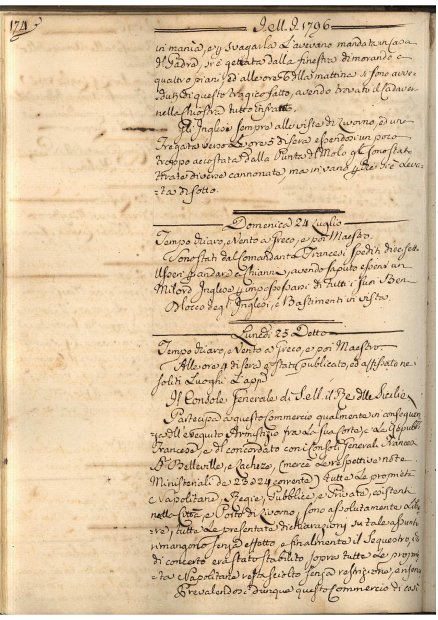 174
Dell. D. 1796
in mania, e p svagarla l'avevano mandata in casa
d'l Padre, si è gettata dalla finestra dimorando e
quattro piani, ed alle ore 6 della mattina si sono avve-
duti di questo tragico fatto, avendo trovato il Cadavere
nella chiostra tutto infranto.
Gli Inglesi sempre alle viste di Livorno, ed una
Fregata verso le ore 5 di sera essendosi un poco
troppo accostata dalla Punta d'l Molo gli sono stati
tirate diverse cannonate, ma in vano p che si è leva-
ta di sotto.
Domenica 24 Luglio
Tempo chiaro, Vento a Greco, e poi Maestro.
Sono stati dal Comandante Francesi spediti
p andare a avendo saputo esservi un
Milord Inglese p impossessarsi di tutti i suoi Beni
Blocco degl'Inglesi, e Bastimenti in vista.
Lunedi 25 Detto
Tempo chiaro, Vento a Greco, e poi Maestro.
Alle ore 4 di sera è stato publicato, ed affissato ne
soliti Luoghi
Il Console Generale di S. M. il Re delle Sicilie
Partecipa a questo Commercio qualmente in conseguen-
za dell'eseguito Armistizio fra la sua Corte, e la Republica
Francese, e di concordato con i Consoli Generali Francesi
Belleville, e Lacheze, (merce le respettive note
Ministeriali de 23 e 24 corrente) tutte le proprietà
Napolitane, Regie, Pubblice, e Private, esistenti
nella Città, e Porto di Livorno, sono assolutamente libere
tutte le presentate dichiarazioni su tale assunto
rimangono senza effetto, e finalmente il sequestro, che
di concerto era stato stabilito sopra tutte le proprie-
tà Napolitane resta sciolto senza restrizione,
Prevalendosi dunque questo Commercio di così